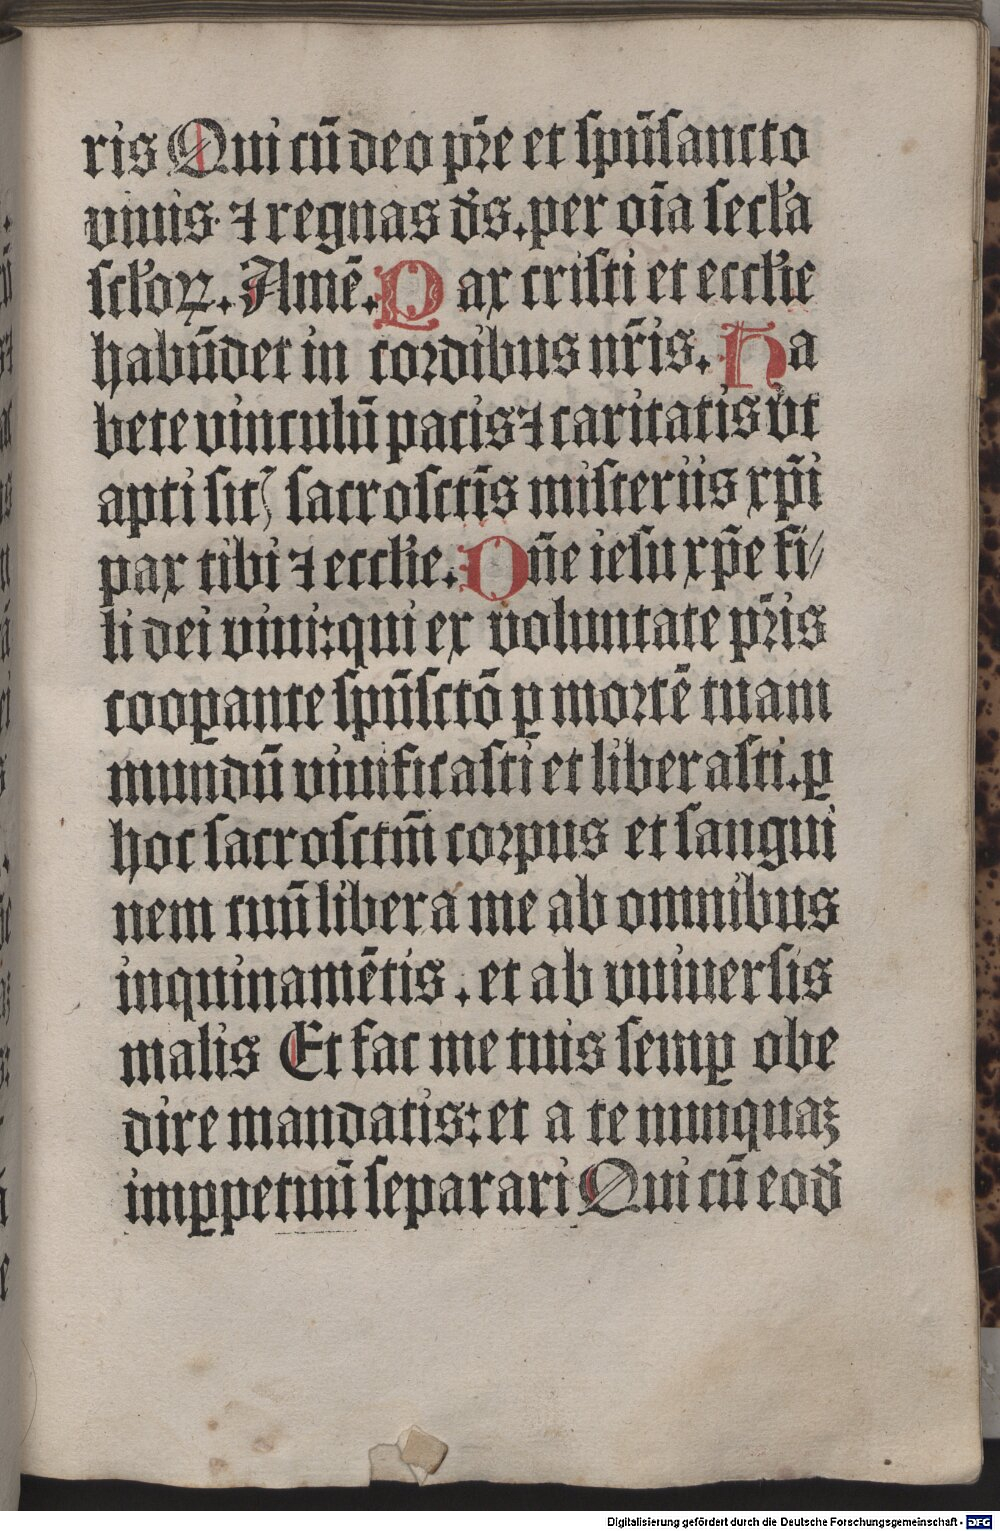 ris Qui cū deo pr̄e et sp̄usancto
viuis· ⁊ regnas d̄s.per oīa secl̓a
scl̓oꝝ. Amē. Pax cristi et eccl̓ie
habūdet in coꝛdibus nr̄is. Ha
bete vinculū pacis ⁊ caritatis vt
apti sitꝭ sacrosctīs misteriis xp̄i
pax tibi ⁊ eccl̓ie. Dn̄e iesu xp̄e fi/
li dei viui: qui ex voluntate pr̄is
cooꝑante sp̄usctō ꝑ moꝛtē tuam
mundū viuificasti et liberasti.ꝑ
hoc sacrosctm̄ coꝛpus et sangui
nem tuū libera me ab omnibus
inquinamētis . et ab vniuersis
malis Et fac me tuis semꝑ obe
dire mandatis: et a te nunquaꝫ
imꝑpetuū separari Qui cū eod̄
Digitalisierung gefördert durch die Deutsche Forschungsgemeinschaft - DFG